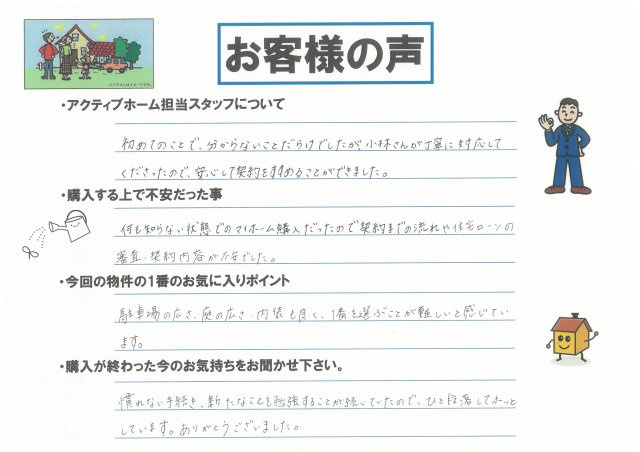 お客様の声
・アクティブホーム担当スタッフについて
初めてのことで、分からないことだらけでしたが、小林さんが丁寧に対応して
くださったので、安心して契約をすすめることができました。
・購入する上で不安だった事
何も知らない状態でのマイホーム購入だったので契約までの流れや住宅ローンの
審査・契約内容が不安でした。
・今回の物件の1番のお気に入りポイント
駐車場の広さ、庭の広さ、内装も良く、1番を選ぶことが難しいと感じてい
ます。
・購入が終わった今のお気持ちをお聞かせ下さい。
慣れない手続き、新たなことを勉強することが続いていたので、ひと段落してホッと
しています。ありがとうございました。